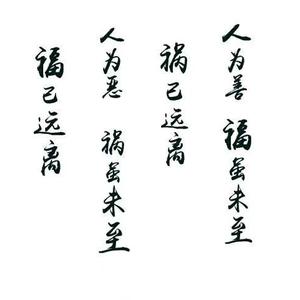 人为善 福虽未至
祸已远离
人为恶 祸虽未至
福已远离